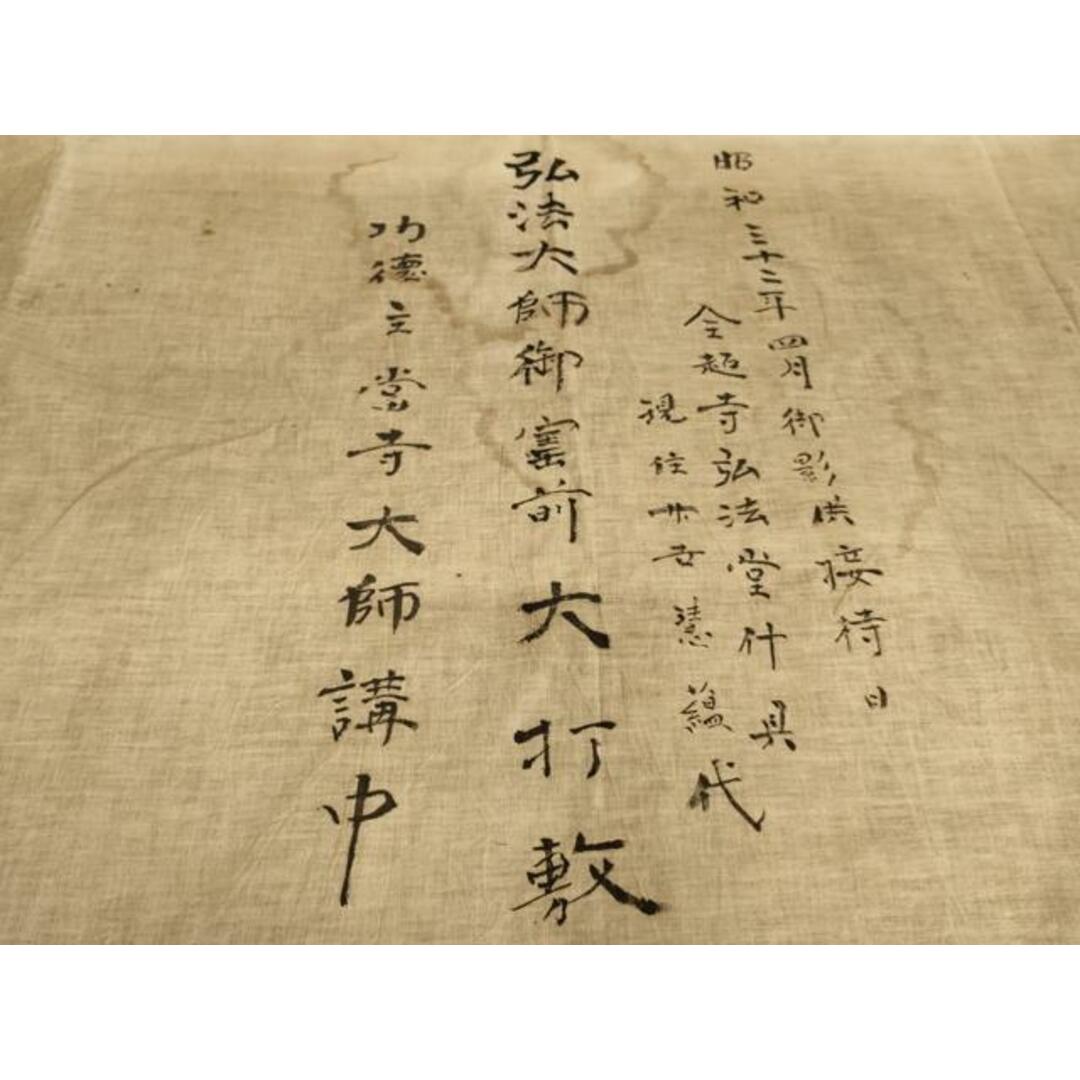 昭和三十二年四月御影供接待日
全超寺弘法堂什具
現住廿世慧蘊代
弘法大師御宝前大打敷
功德主當寺大師講中